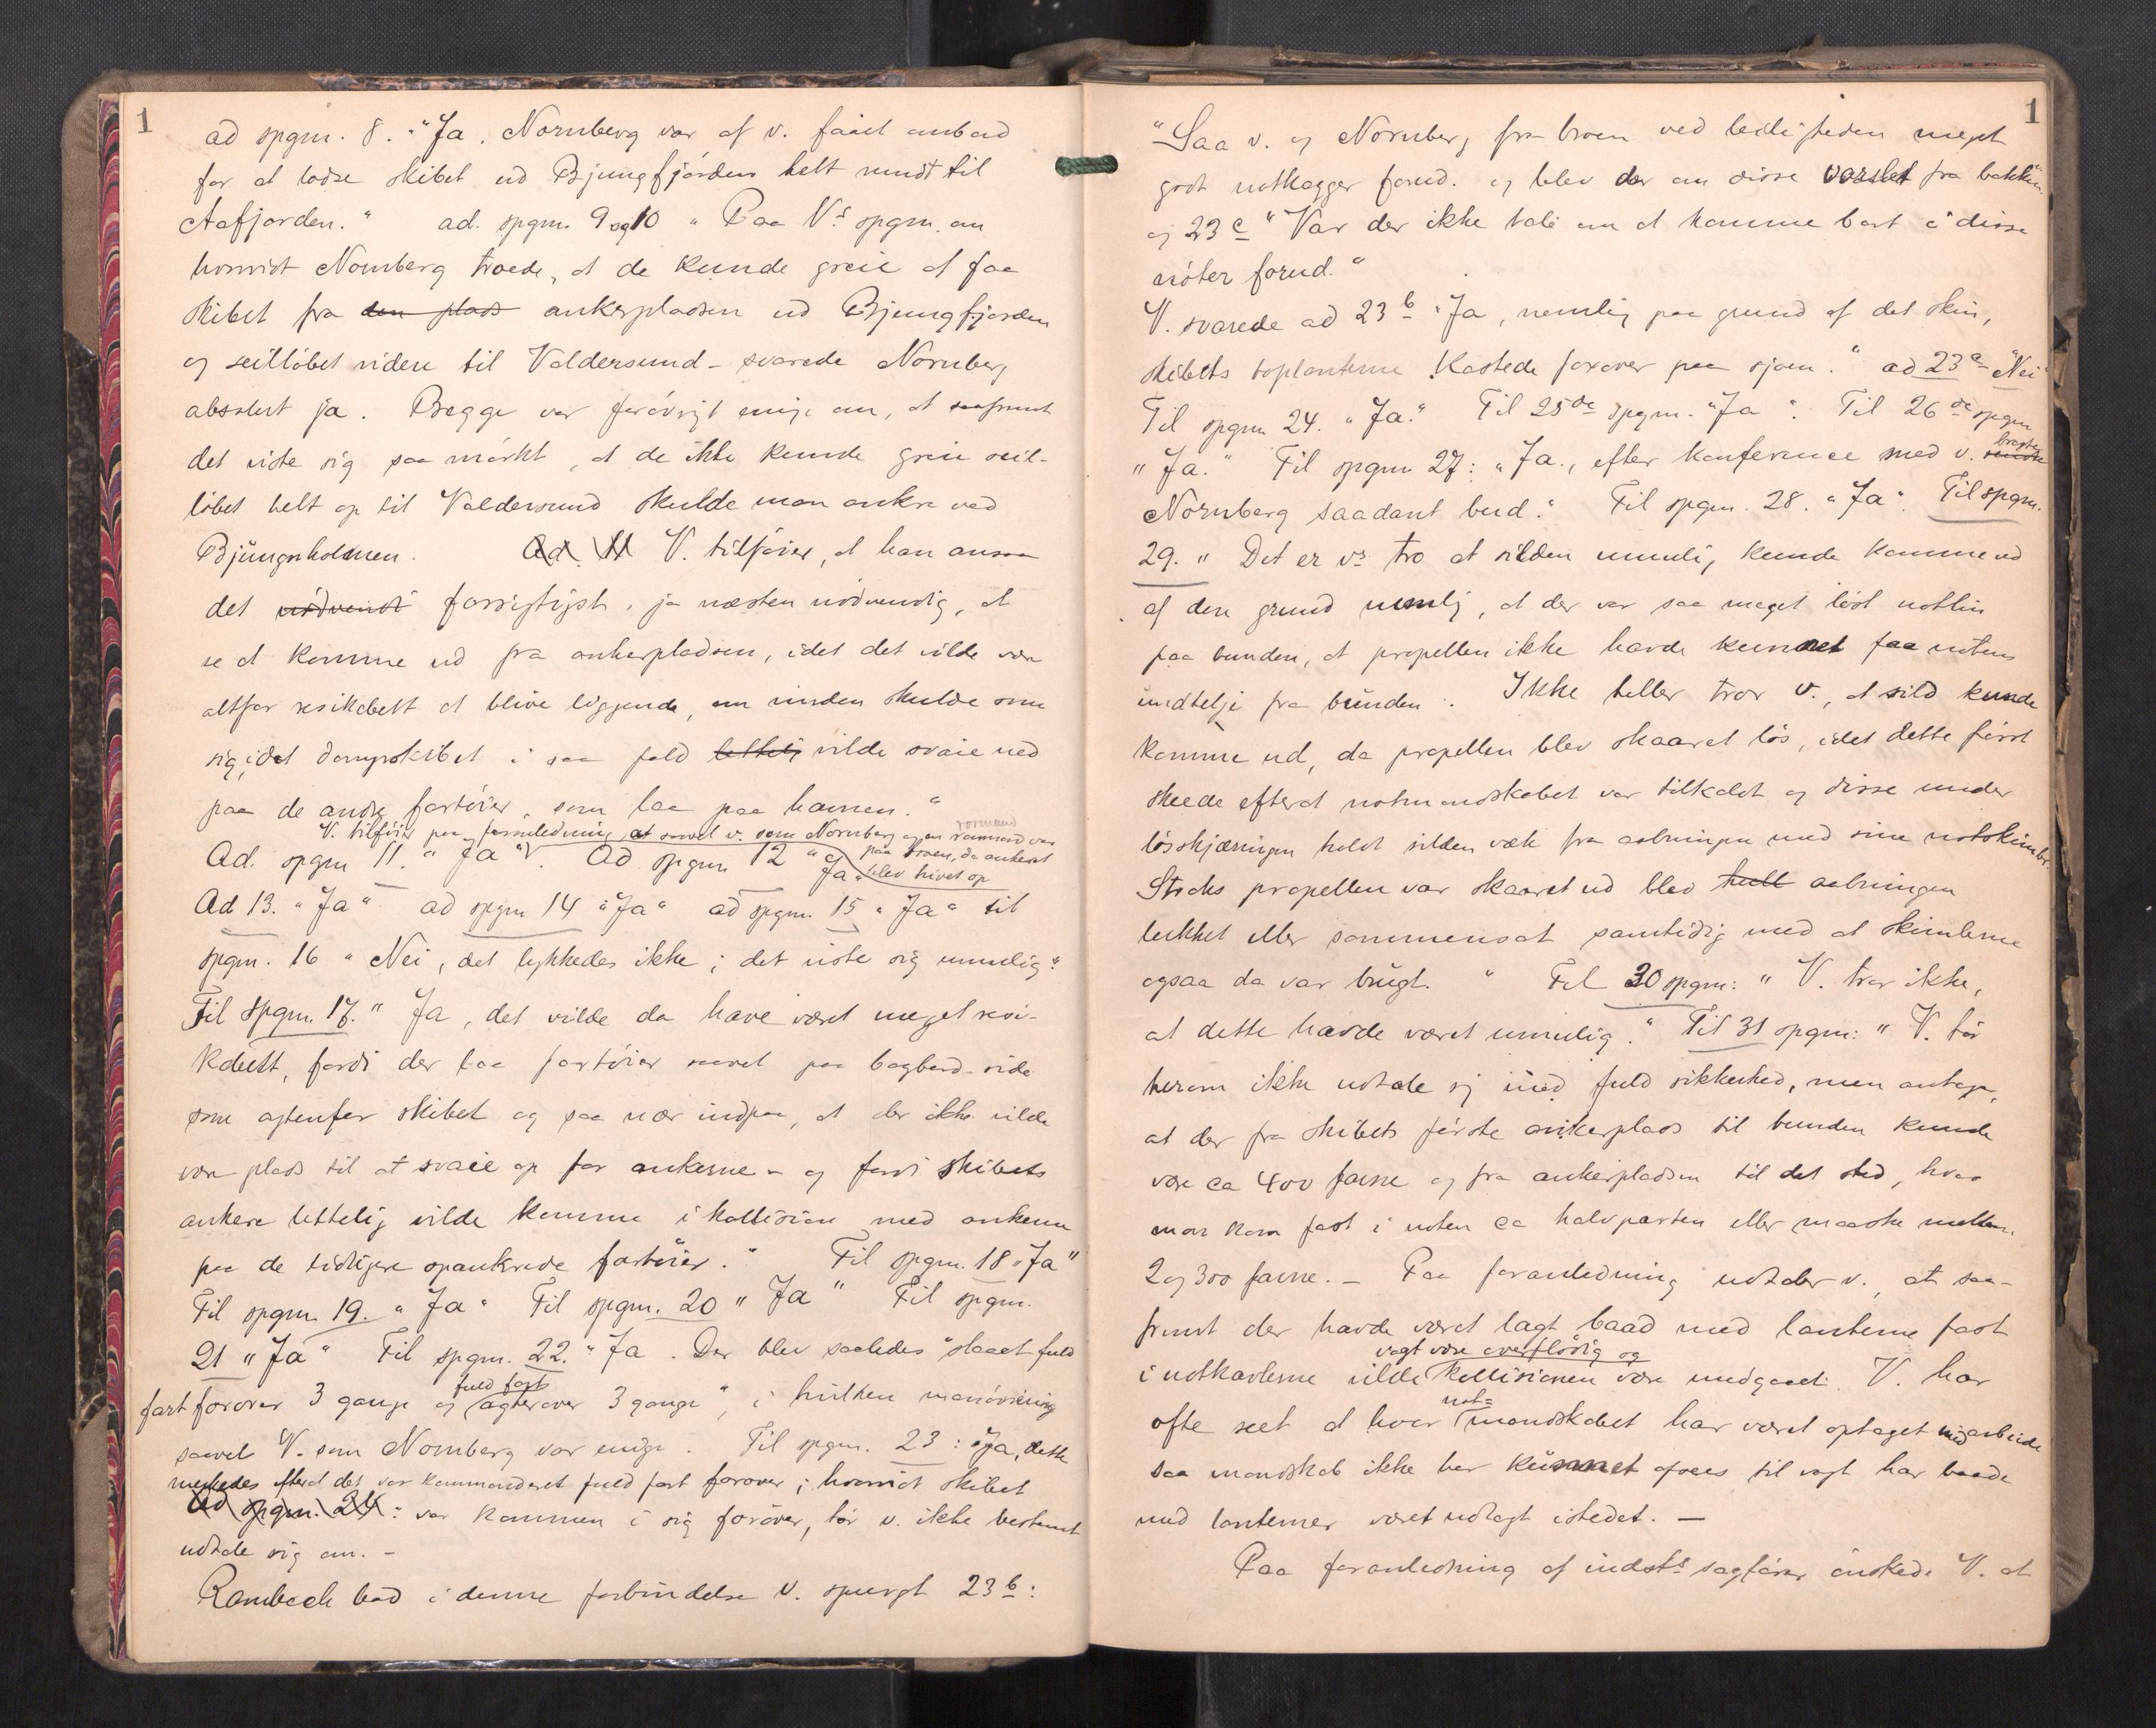 1
ad spgm. 8. "Ja. Nornberg var af v. faaet ombord
for at lodse skibet ud Bjungfjorden helt rundt til
Aafjorden." ad. spgm. 9 og 10 "Paa V's spgm. om
hvorvidt Nornberg troede, at de kunde greie at faa
skibet fra den plads ankerpladsen ud Bjungfjorden
og seilløbet videre til Valdersund - svarede Nornberg
absolut ja. Begge var forøvrigt enige om, at saafremt
det viste sig saa mørkt, at de ikke kunde greie seil-
løbet helt op til Valdersund skulde man ankre ved
Bjungnholmen. Ad 11 V. tilføier, at han ansaa
det nødvendi forsigtigst, ja næsten nødvendig, at
se at komme ud fra ankerpladsen, idet det vilde være
altfor resikabelt at blive liggende, om vinden skulde
sig, idet dampskibet i saa fald lettelig vilde svaie ned
paa de andre fartøier, som laa paa havnen."
V. tilføier paa foranledning at saavel v. som Nornberg og en rormand var
rormand
Ad. spgm 11. "Ja" V. Ad spgm 12 "Ja" paa broen, da ankeret
blev hivet op
Ad 13. "Ja" ad spgm 14 "Ja" ad spgm. 15 "Ja" til
spgm. 16 "Nei, det lykkedes ikke; det viste sig umulig."
Til spgm. 17. "Ja, det vilde da have været meget resi-
kabelt, fordi der laa fartøier saavel paa bagbord side
som agtenfor skibet og saa nær indpaa, at der ikke vilde
være plads til at svaie op for ankerne - og fordi skibets
ankere lettelig vilde komme i kollision med ankerne
paa de tidligere opankrede fartøier." Til spgm. 18 "Ja"
Til spgm. 19. "Ja" Til spgm. 20 "Ja" Til spgm.
21 "Ja" Til spgm. 22. "Ja. Der blev saaledes slaaet fuld
fuld fart
fart forover 3 gange og agterover 3 gange", i hvilken manøvrering
saavel V. som Nornberg var enige. Til spgm. 23: "Ja, dette
merkedes efterat det var kommanderet fuld fart forover; hvorvidt skibet
Ad spgm. 24: var kommen i sig forover, tør v. ikke bestemt
udtale sig om. -
Rambech bad i denne forbindelse v. spurgt 23 b:
1
"Saa v. og Nornberg fra broen ved leiligheden meget
godt notkagger forud. og blev der om disse varslet fra bakken
og 23 c "Var der ikke tale om at komme bort i disse
nøter forud."
V. svarede ad 23 b "Ja, nemlig paa grund af det skin,
skibets toplanterne kastede forover paa sjøen." ad 23 c "Nei"
Til spgm 24. "Ja." Til 25de spgm. "Ja". Til 26de spgm
bragte
"Ja." Til spgm 27: "Ja., efter konference med v. sendte
Nornberg saadant bud." Til spgm. 28. "Ja". Til spgm.
29. "Det er vs tro at silden umuli, kunde komme ud
af den grund nemlig, at der var saa meget løst notlin
paa bunden, at propellen ikke havde kunnet faa notens
undtelje fra bunden. Ikke heller tror v., at sild kunde
komme ud, da propellen blev skaaret løs, idet dette først
skeede efterat notmandskabet var tilkaldt og disse under
løsskjæringen holdt silden væk fra aabningen med sine notskimler.
Straks propellen var skaaret ud blev hull aabningen
lukket eller sammensat samtidig med at skimlerne
ogsaa da var brugt." Til 30 spgm: "V. tror ikke,
at dette havde været umulig." Til 31 spgm: "V. tør
herom ikke udtale sig med fuld sikkerhed, men antager,
at der fra skibets første ankerplads til bunden kunde
være ca 400 favne og fra ankerpladsen til det sted, hvor
man kom fast i noten ca halvparten eller maaske mellem
2 og 300 favne. - Paa foranledning udtaler v., at saa-
fremt der havde været lagt baad med lanterne fast
vagt være overflødig og
i notkavlerne vilde kollisionen være undgaaet. V. har
not-
ofte seet at hvor mandskabet har været optaget med arbeide
saa mandskab ikke har kunnet afsees til vagt har baade
med lanterner været udlagt istedet. -
Paa foranledning af indsts sagfører ønskede V. at